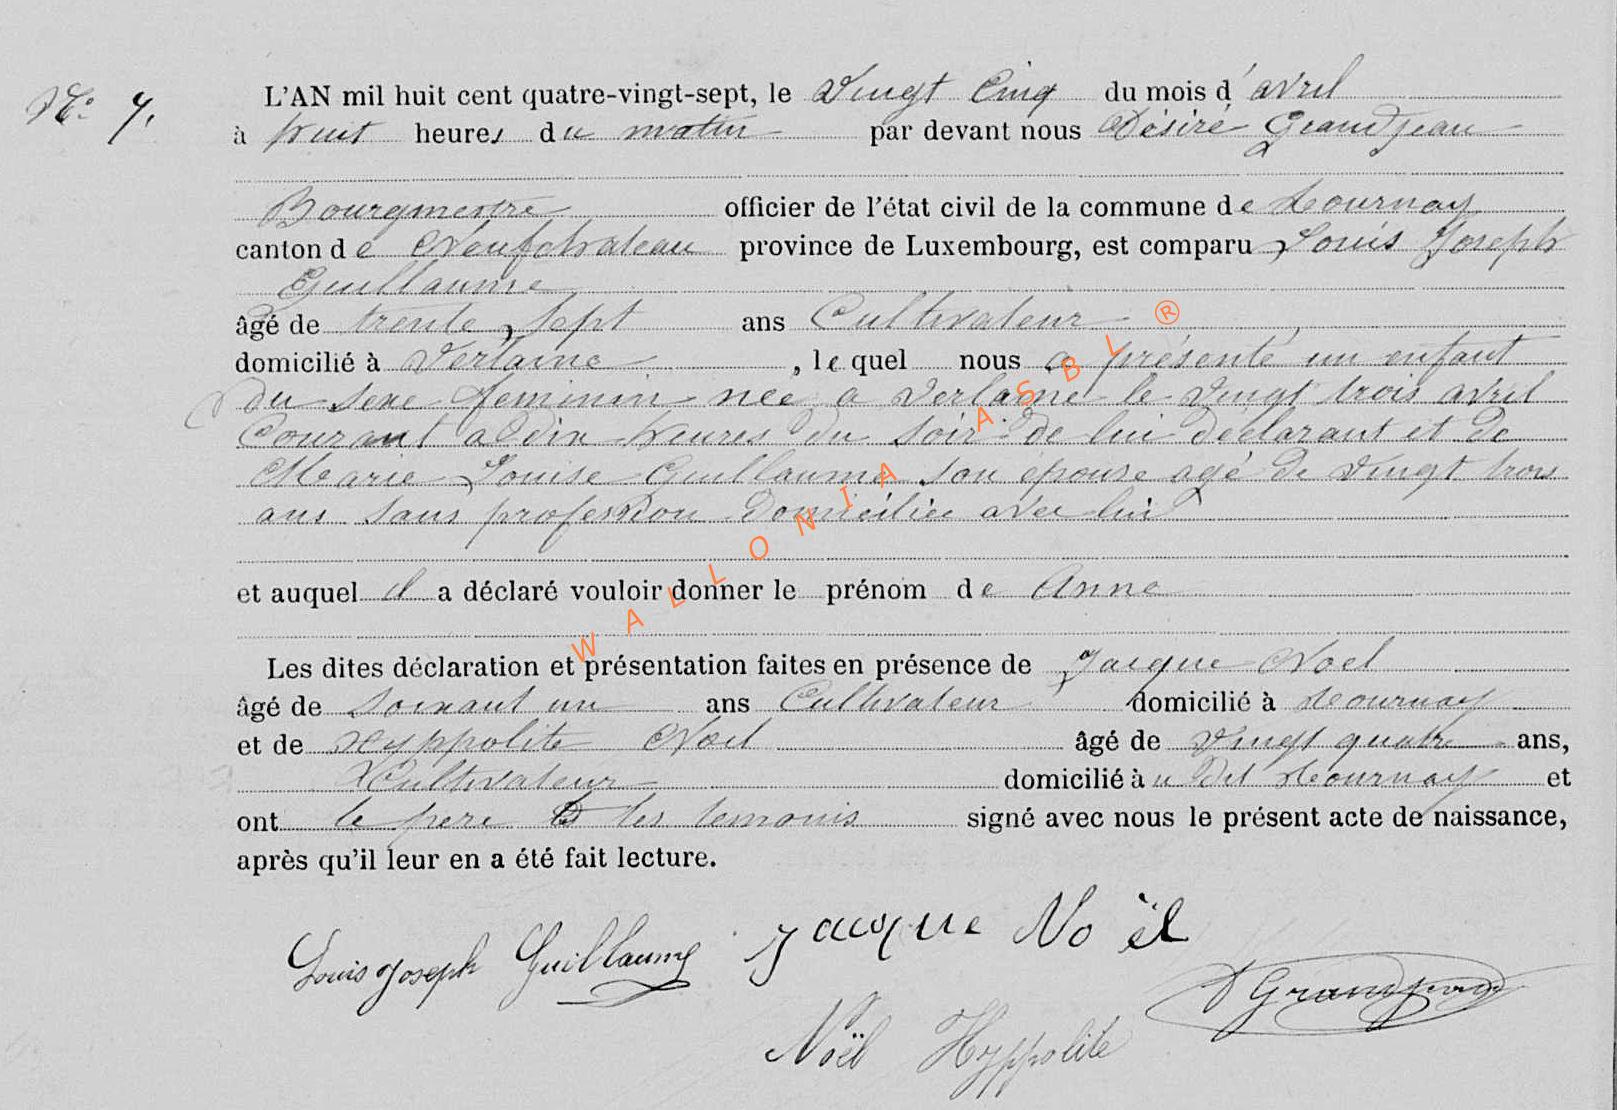 No. 7.
L'AN mil huit cent quatre-vingt-sept, le Vingt Cinq du mois d'avril
à huit heures du matin par devant nous Désiré Grandjean
Bourgmestre officier de l'état civil de la commune de Tournay
canton de Neufchateau province de Luxembourg, est comparu Louis Joseph
Guillaume
âgé de trente sept ans Cultivateur
domicilié à Verlaine, lequel nous a présenté un enfant
du sexe feminin née a Verlaine le Vingt trois avril
Courant a dix heures du soir de lui déclarant et de
Marie Louise Guillaume son épouse agé de Vingt trois
ans sans profession domiciliée avec lui
et auquel il a déclaré vouloir donner le prénom de Anne
Les dites déclaration et présentation faites en présence de Jacque Noel
âgé de soixant un ans Cultivateur domicilié à Tournay
et de Hyppolite Noel âgé de Vingt quatre ans,
Cultivateur domicilié à u dit Tournay et
ont le pere et les temouis signé avec nous le présent acte de naissance,
après qu'il leur en a été fait lecture.
Louis joseph Guillaume jacque Noël
D Grandjean
Noël Hyppolite
WALLONIA ASBL ®